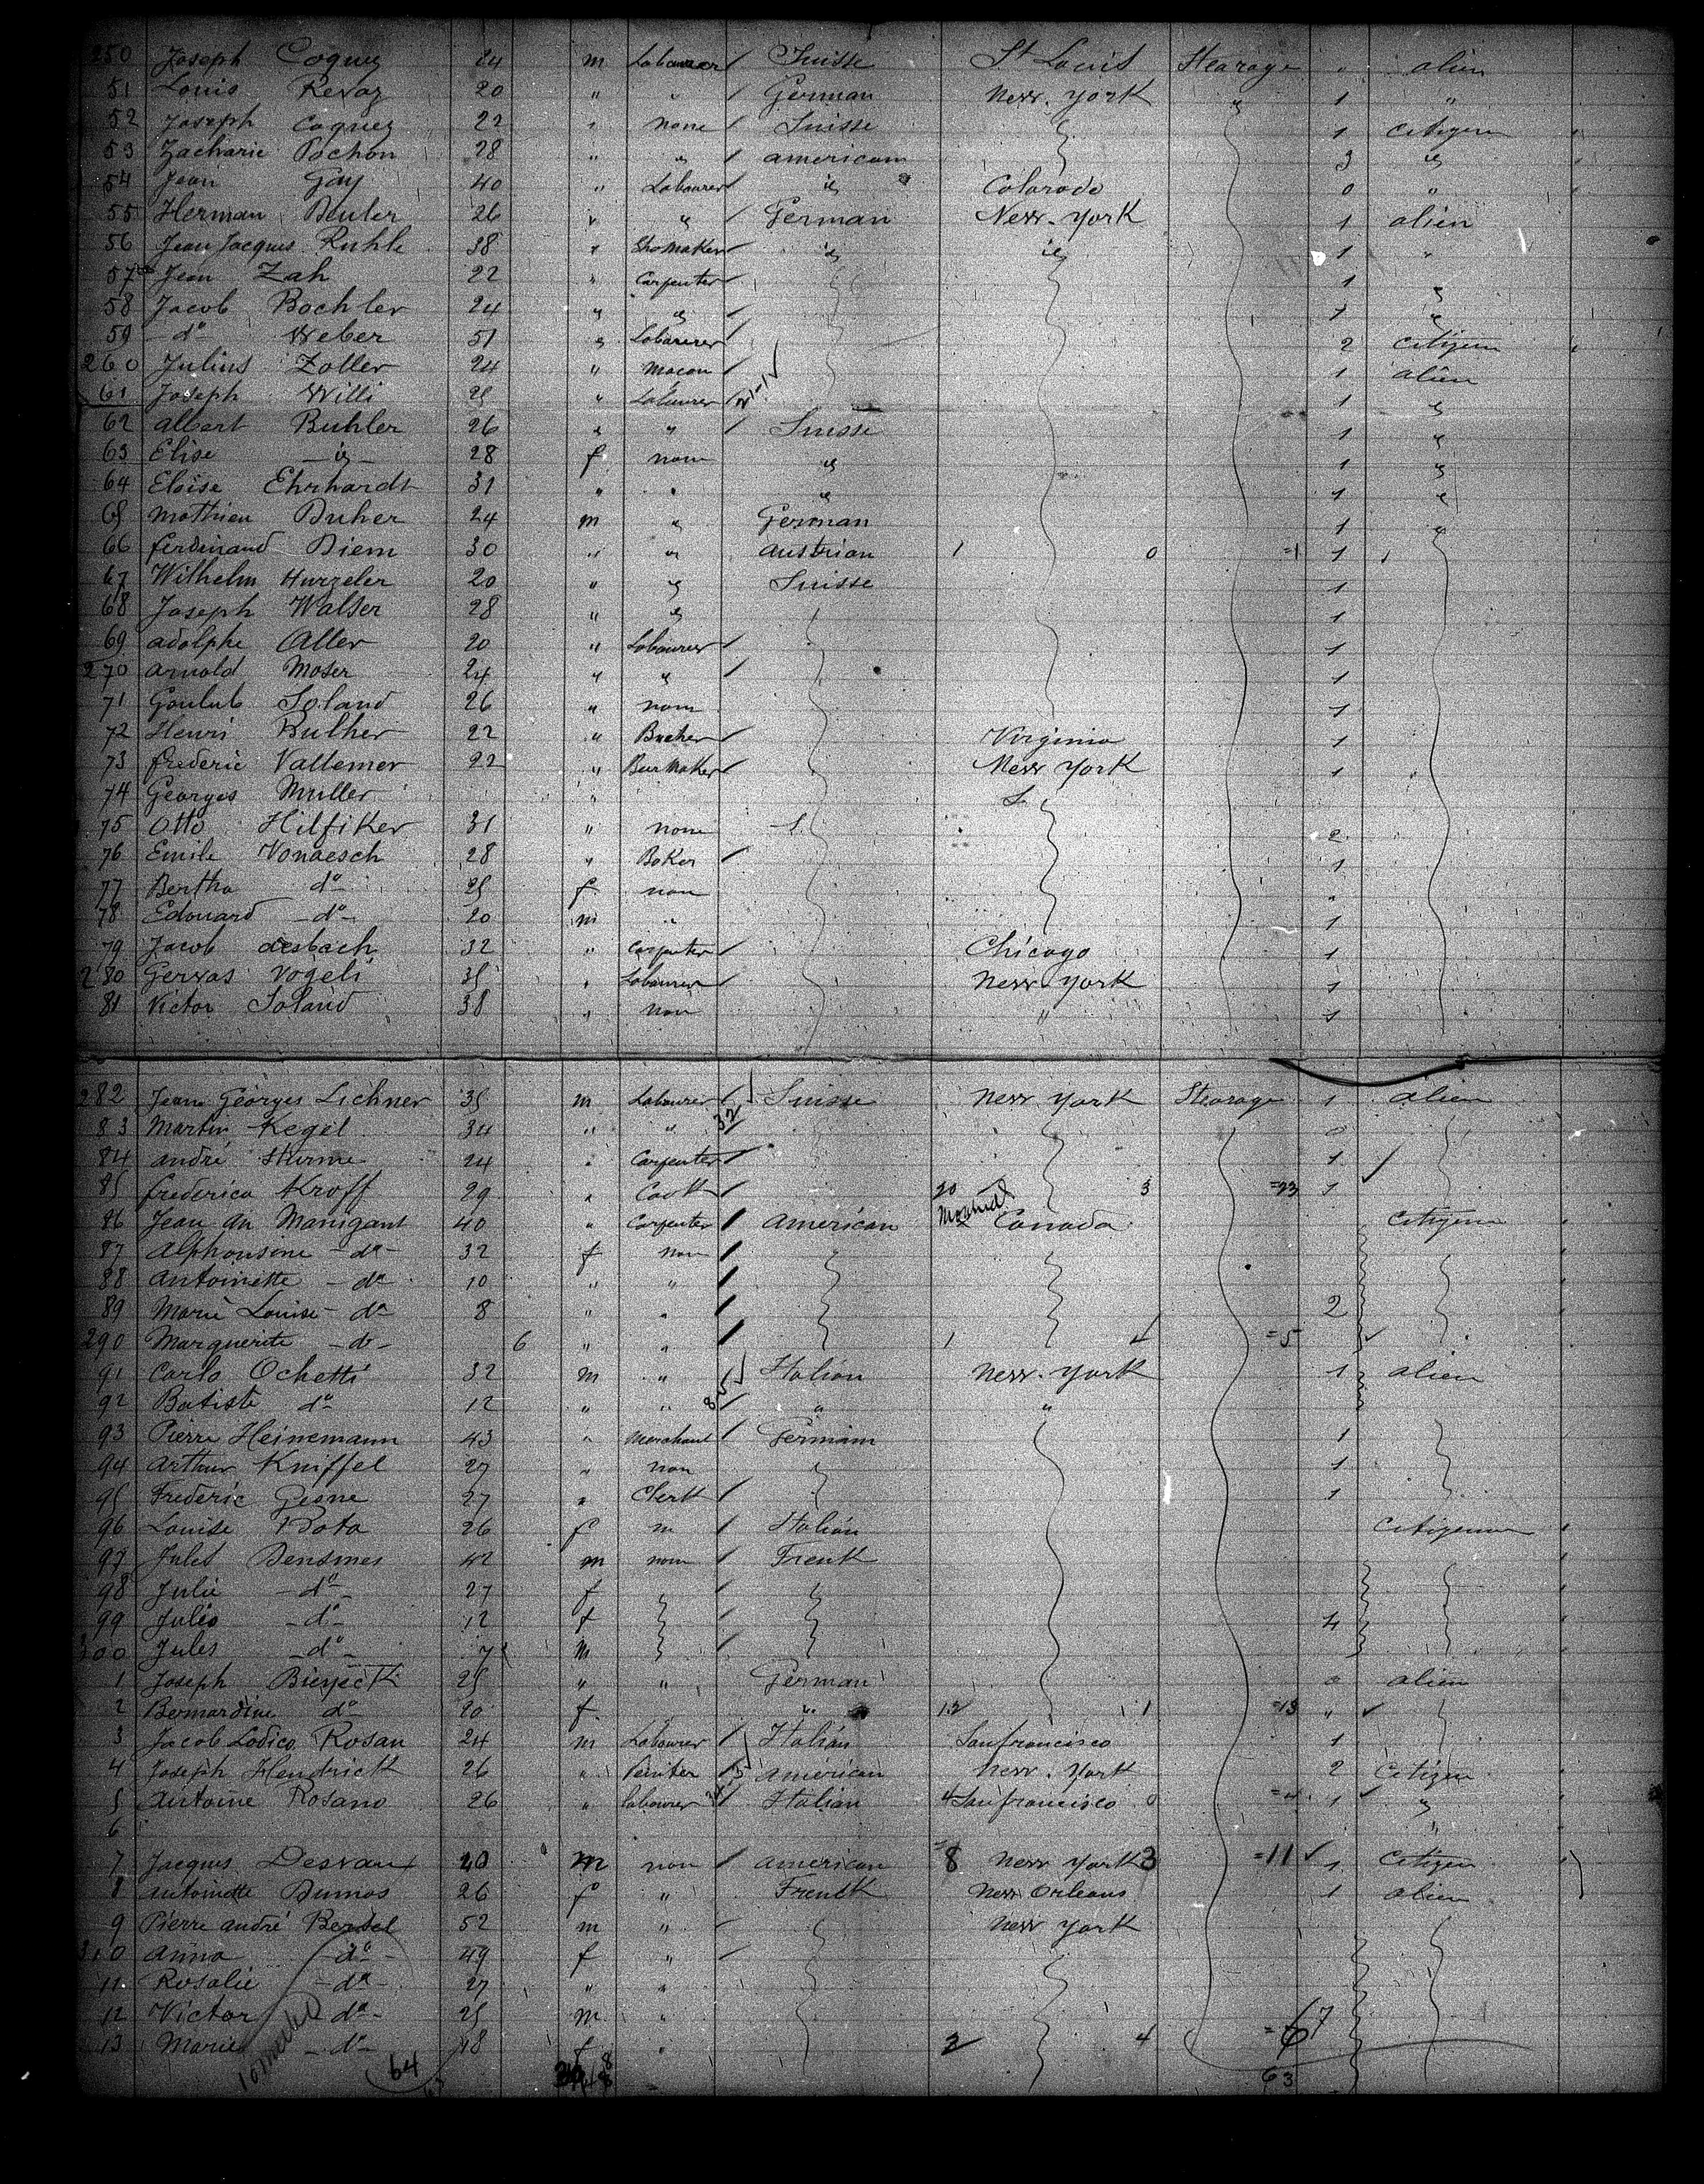 250 Joseph Coquoz 24 m Labourer Suisse St Louis Stearage " alien
51 Louis Revaz 20 " " German New-York " 1 "
52 Joseph Coquoz 22 " none Suisse 1 citizen
53 Zacharie Pochon 28 " " american 3 "
54 Jean Gay 40 " Labourer " Colorado 0 "
55 Herman Beuler 26 " " German New-York 1 alien
56 Jean Jacques Ruhle 38 " ShoMaker " " 1 "
57 Jean Zah 22 " Carpenter 1 "
58 Jacob Bochler 24 " " 1 "
59 do Weber 51 " Labourer 2 citizen
260 Julius Zoller 24 " Macon 1 alien
61 Joseph Willi 25 " Labourer 1 "
62 Albert Buhler 26 " " Suisse 1 "
63 Elise " 28 f non " 1 "
64 Eloise Ehrhardt 31 " " " 1 "
65 Mathieu Duher 24 m " German 1 "
66 ferdinand Diem 30 " " austrian 1 0 =1 1
67 Wilhelm Hurzeler 20 " " Suisse 1
68 Joseph Walser 28 " " 1
69 adolphe Aller 20 " Labourer 1
270 arnold Moser 24 " " 1
71 Soland 26 " non 1
72 Henri Bulher 22 " Bucher Virginia 1
73 frederic Vallemer 22 " Beer Maker New York 1
74 Georges Muller "
75 Otto Hilfiker 31 " none 2
76 Emile Vonaesch 28 " Baker 1
77 Bertha do 25 f non "
78 Edouard do 20 m " 1
79 Jacob Aesbach 32 " Carpenter Chicago 1
280 Gervas Vogeli 35 " Labourer New-York 1
81 Victor Soland 38 " non " 1
282 Jean Georges Lichner 35 m Labourer Suisse New York Stearage 1 alien
83 Martin Kegel 34 " " 37 0
84 andré Sturme 24 " Carpenter 1
85 frederica Kroff 29 " Cook 20 3 =23 1
86 Jean du Manigant 40 " Carpenter American Canada citizen
87 Alphonsine do 32 f non
88 Antoinette do 10 " "
89 Marie Louise do 8 " " 2
290 Marguerite do 6 " " 1 4 =5
91 Carlo Ochetti 32 m " Italian New-York 1 alien
92 Batista do 12 " " " "
93 Pierre Heinemann 43 " Merchant German 1
94 Arthur Kniffel 27 " non 1
95 Frederic Gesne 27 " Clerk 1
96 Louise Bota 26 f " Italian citizen
97 Jules Densmes 42 m non French
98 Julie do 27 f
99 Julia do 12 f 4
300 Jules do 7 m
1 Joseph 25 " " German 0 alien
2 Bernardine do 20 f " 12 1 =13 "
3 Jacob Lodico Rosan 24 m Labourer Italian Sanfrancisco 1
4 Joseph Hendrick 26 " Peinter American New-York 2 Citizen
5 Antoine Rosano 26 " labourer Italian 4 Sanfrancisco 0 =4 1 "
6 "
7 Jacques Desvaux 20 m non American 8 New York 3 =11 1 Citizen
8 Antoinette Dumas 26 f " French New Orleans 1 alien
9 Pierre andré Bertel 52 m " New York
310 Anna do 49 f "
11 Rosalie do 27 " "
12 Victor do 25 m "
13 Marie do 18 f " 4 =67
64 63